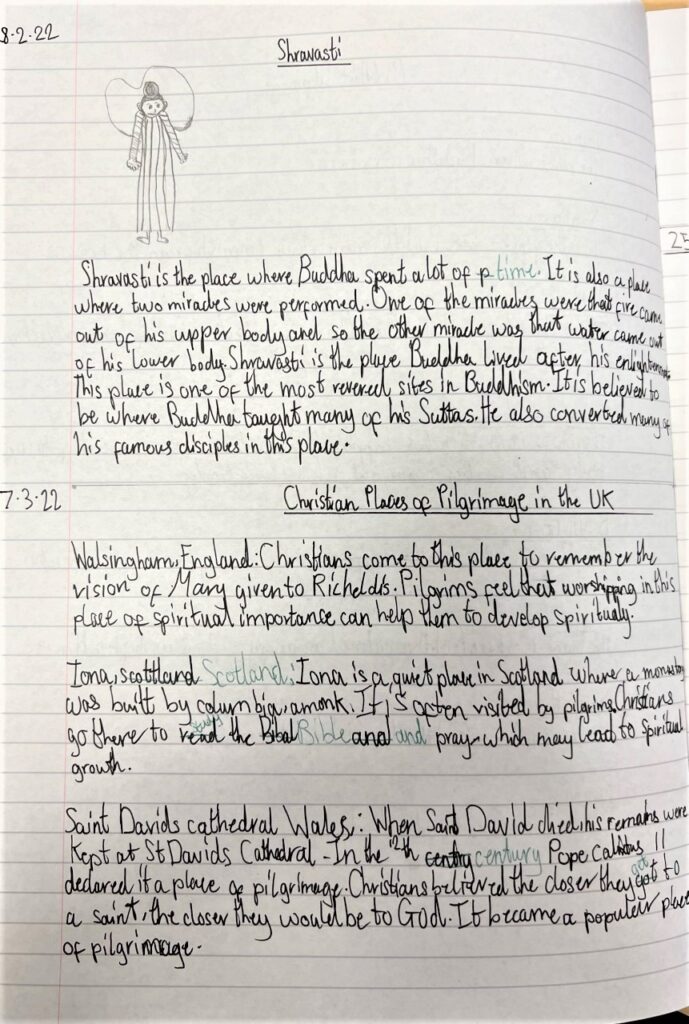 8.2.22
Shravasti
Shravasti is the place where Buddha spent a lot of p time. It is also a place
where two miracles were performed. One of the miracles were that fire came
out of his upper body and so the other miracle was that water came out
of his lower body. Shravasti is the place Buddha lived after his enlightenment.
This place is one of the most revered sites in Buddhism. It is believed to
be where Buddha taught many of his Suttas. He also converted many of
his famous disciples in this place.
25
7.3.22
Christian Places of Pilgrimage in the UK
Walsingham, England: Christians come to this place to remember the
vision of Mary given to Richeldis. Pilgrims feel that worshipping in this
place of spiritual importance can help them to develop spiritualy.
Iona, scottland Scotland: Iona is a quiet place in Scotland where a monastery
was built by columbia, a monk. It is often visited by pilgrims. Christians
go there to read study the Bibal Bible and and pray which may lead to spiritual
growth.
Saint Davids cathedral Wales: When Saint David died, his remains were
kept at St Davids Cathedral. In the 12th centry century Pope 11
declared it a place of pilgrimage. Christians believed the closer they got get to
a saint, the closer they would be to God. It became a popular place
of pilgrimage.